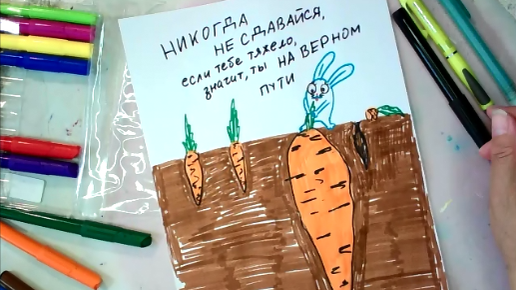 НИКОГДА
НЕ СДАВАЙСЯ,
если тебе тяжело,
значит, ты НА ВЕРНОМ
ПУТИ